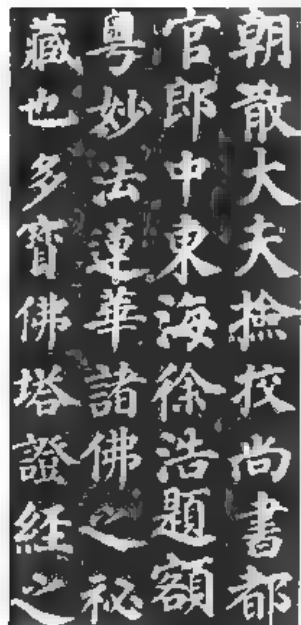 朝散大夫撿挍尚書都
官郎中東海徐浩題額
粵妙法蓮華諸佛之祕
藏也多寶佛塔證經之